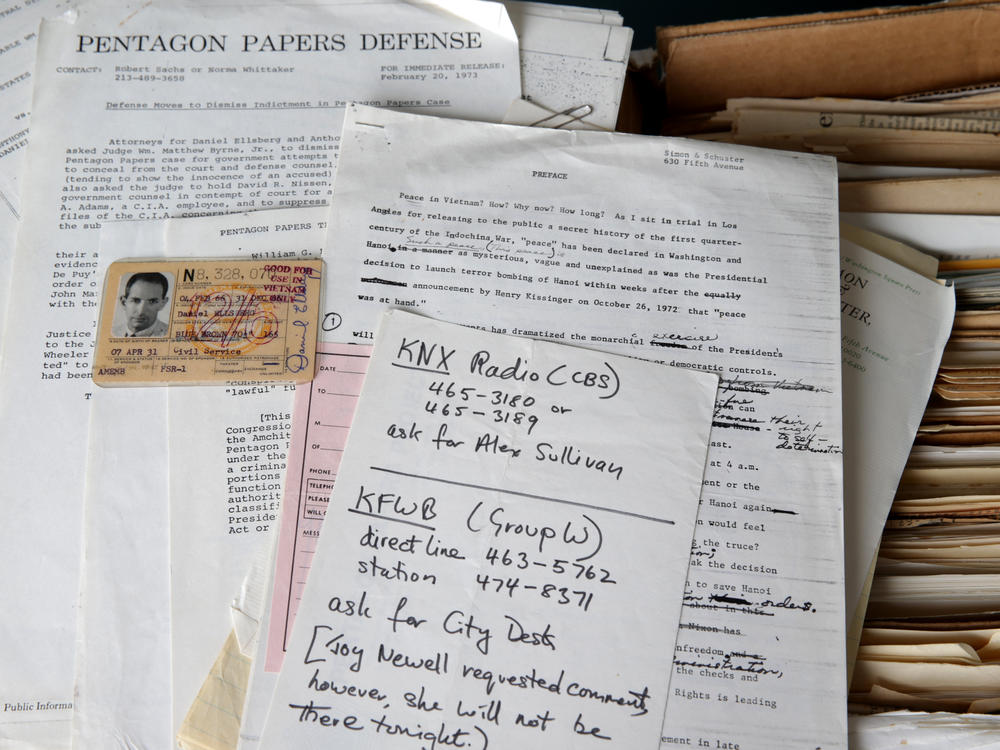 PENTAGON PAPERS DEFENSE
CONTACT: Robert Sachs or Norma Whittaker
213-489-3658
FOR IMMEDIATE RELEASE:
February 20, 1973
Defense Moves to Dismiss Indictment in Pentagon Papers Case
Attorneys for Daniel Ellsberg and Antho
asked Judge Wm. Matthew Byrne, Jr., to dismis
Pentagon Papers case for government attempts t
to conceal from the court and defense counsel
(tending to show the innocence of an accused)
also asked the judge to hold David R. Nissen,
government counsel in contempt of court for a
A. Adams, a C.I.A. employee, and to suppress
files of the C.I.A. concerning
the sub
their evi
De Puy'
order o
John Ma
with the
Justice
to the J
Wheeler
ted" to
had been
T
Public Informa
PENTAGON PAPERS T
William G.
"lawful" fu
[This
Congressio
the Amchit
Pentagon P
under the
a crimina
portions
function
authorit
classifi
Preside
Act or
N8, 328, 07
GOOD FOR
USE IN
VIETNAM
ONLY
04 FEB 66 31 DEC
Daniel ELLSBERG
BLUE BROWN 70 165
07 APR 31 Civil Service
AMEMB FSR-1
Daniel
DATE
TO
M
OF
PHONE
TELEPH
PLEASE
WILL C
MESS
Simon & Schuster
630 Fifth Avenue
PREFACE
Peace in Vietnam? How? Why now? How long? As I sit in trial in Los
Angles for releasing to the public a secret history of the first quarter-
century of the Indochina War, "peace" has been declared in Washington and
Such a peace (this peace) is
Hanoi in a manner as mysterious, vague and unexplained as was the Presidential
decision to launch terror bombing of Hanoi within weeks after the equally
announcement by Henry Kissinger on October 26, 1972 that "peace
was at hand."
1
will
ents has dramatized the monarchial exercise of the President's
or democratic controls.
bombing
can
their
right
to self-
determination
House
ast.
at 4 a.m.
ment or the
Hanoi again
n would feel
g the truce?
ak the decision
n to save Hanoi
orders.
about in this
Nixon has
nfreedom and a
ministration,
the checks and
Rights is leading
ement in late
KNX Radio (CBS)
465-3180 or
465-3189
ask for Alex Sullivan
KFWB (Group W)
direct line 463-5762
station 474-8371
ask for City Desk
[Joy Newell requested comment,
however, she will not be
there tonight.)
Washington Square Press
ON
TER,
Fifth Avenue